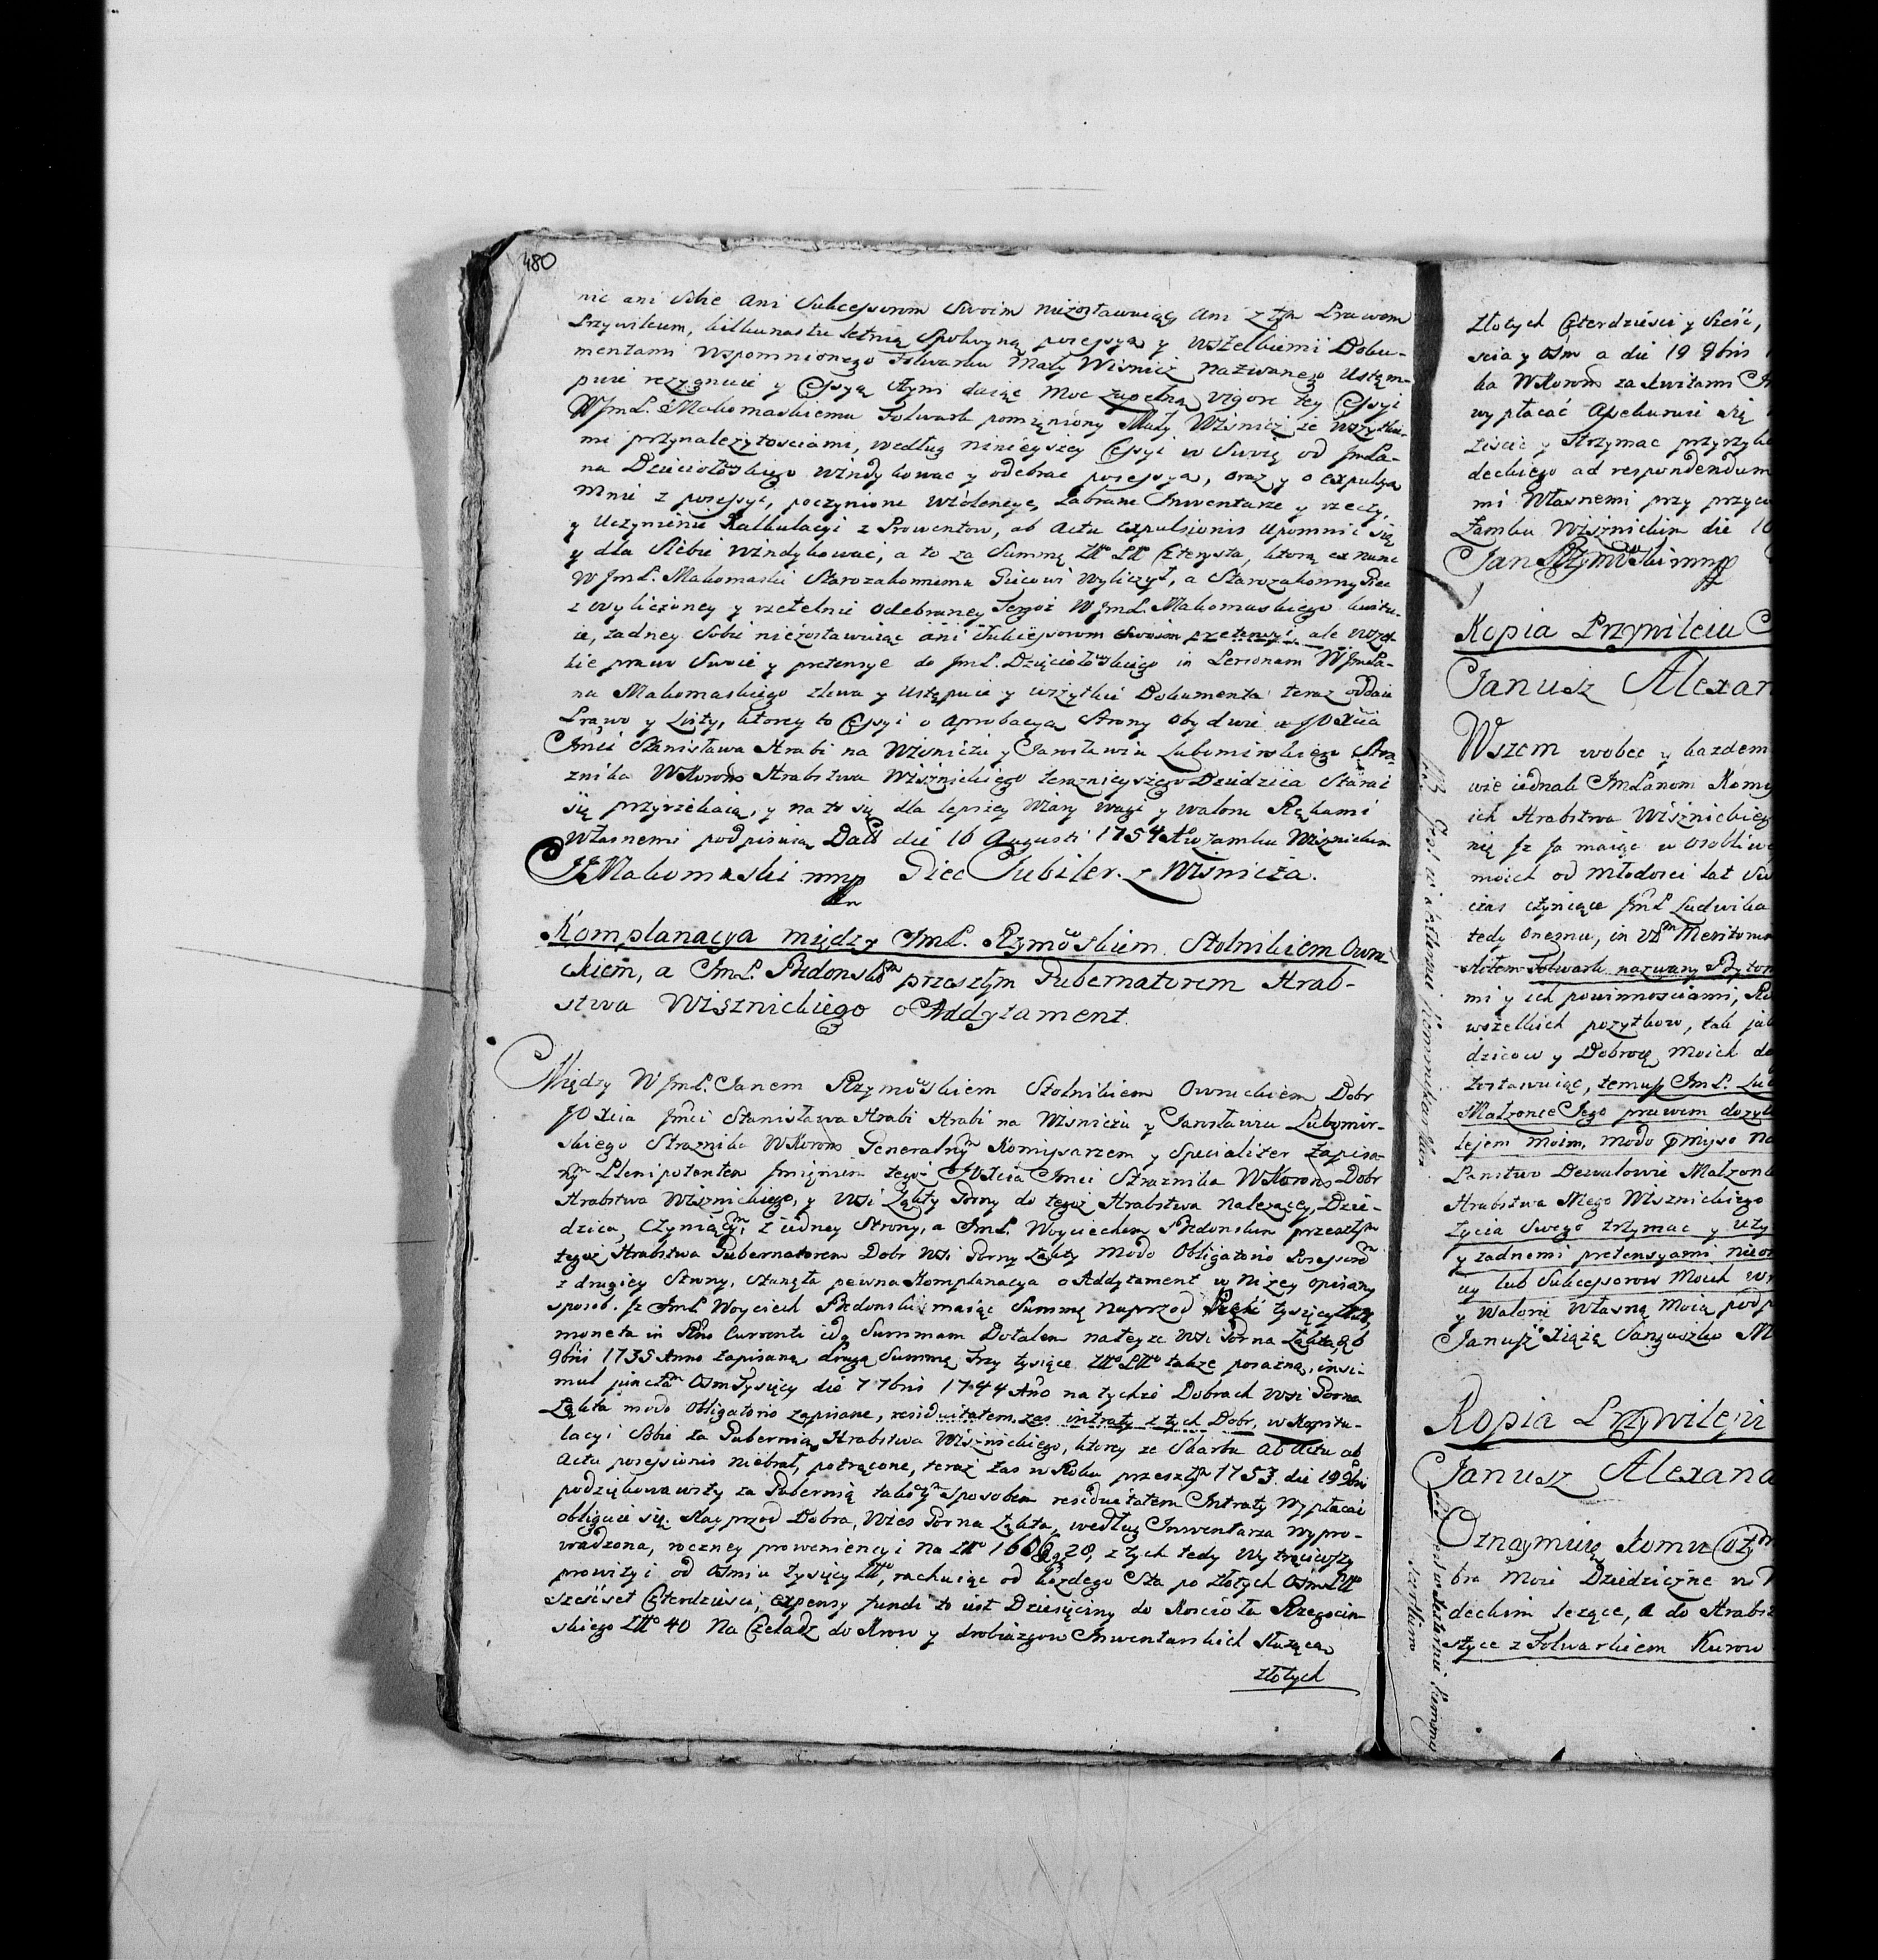 480
nic ani Sobie ani Sukcessorom Swoim niezostawuiąc ani z tym Prawem
Przywileum, kilkunastu letnią Spokoyną possessyą y wszelkiemi Doku-
mentami wspomnionego Folwarku Mały Wisnicz nazwanego Ustęm-
puie rezygnuie y Cessyą czyni daiąc Moc zupełną vigore tey Cessyi
WJmP. Makomaskiemu Folwark pomięniony Mały Wisnicz ze wszytkie-
mi przynalezytosciami, według ninieyszey Cessyi w Swoię od JmPa-
na Dzieciołowskiego windykowac y odebrac possessyą, oraz y o expulsyą
mnie z possessyi, poczynione wiolencye, zabrane Inwentarze y rzeczy,
y Uczynienie Kalkulacyi z Prowentow, ab actu expulsionis upomnić się
y dla Siebie windykowac, a to za Summę Złt Pl Czterysta, ktorą ex nunc
WJmP. Makomaski Starozakonnemu Giecowi wyliczył, a Starozakonny Giec
z wyliczoney y rzetelnie odebraney Tegoż WJmP. Makomaskiego kwitu-
ie, zadney Sobie niezostawuiąc ani Sukcessorom Swoim pretensyi ale wszel-
kie prawo Swoie y pretensye do JmP. Dzięciołowskiego in Personam WJmPa-
na Makomaskiego zlewa y ustępuie y wszytkie Dokumenta teraz oddaie
Prawo y Listy, ktorey to Cessyi o aprobacyą Strony obydwie u JO Xcia
Jmci Stanisława Hrabi na Wisniczu y Jarosławiu Lubomirskiego Stra-
znika WKoron Hrabstwa Wisznickiego teraznieyszego Dziedzica Starać
się przyrzekaią, y na to się dla lepszey Wiary wagi y waloru Rękami
własnemi podpisuią Datt die 16 Augusti 1754 A w Zamku Wisznickim
JMakomaski mmp Giec Jubiler z Wisnicza.
Komplanacya między JmP. Rzymowskiem Stolnikiem Owru-
ckiem, a JmP. Bedonskim przeszłym Gubernatorem Hrab-
stwa Wisznickiego o Addytament.
Między WJmP. Janem Rzymowskiem Stolnikiem Owruckiem Dobr
JO Xcia Jmci Stanisława Hrabi Hrabi na Wisniczu y Jarosławiu Lubomir-
skiego Straznika WKoron Generalnym Komissarzem y Specialiter zapisa-
nym Plenipotentem Imięniem tegoż JO Xcia Jmci Straznika WKoron Dobr
Hrabstwa Wisznickiego, y wsi Łąkty Gorny do tegoż Hrabstwa nalezącey, Dzie-
dzica, czyniącym, z iedney Strony, a JmP. Woyciechem Bedonskim przeszłym
tegoż Hrabstwa Gubernatorem Dobr wsi Gorny Łąkty modo Obligatorio Possessorem
z drugiey Strony, stanęła pewna Komplanacya o Addytament w nizey opisany
sposob. Jz JmP Woyciech Bedonski maiąc Summę naprzod Pięć tysięcy
moneta in Currenti idq Summam Dotalem na teyze wsi Gorna Łąkta, 6
9bris 1735 Anno zapisaną drugą Summę trzy tysiące Złt Pl także posażną, insi-
mul junctam Osm Tysięcy die 7 7bris 1744 Anno na tychże Dobrach wsi Gorna
Łąkta modo obligatorio zapisane, residuitatem zas intraty z tych Dobr, w Kapitu-
lacyi Sobie za Gubernią Hrabstwa Wisznickiego, ktorey ze Skarbu ab actu ab
actu possessionis niebrał, potrącone, teraz zas w Roku przeszłym 1753. die 19 9bris
podziękowawszy za Gubernią takowym sposobem residuitatem Intraty wypłacać
obliguie się. Nay przod Dobra, Wies Gorna Łąkta, według Inwentarza wypro-
wadzona, roczney prowenięncyi na Złt 1606 g 28, z tych tedy wytrąciwszy
prowizyi od Osmiu tysięcy Złt, rachuiąc od kazdego Sta po złotych Osm Złt
szescset Czterdziesci, expensy fundi to iest Dziesięciny do Koscioła Rzegocin-
skiego Złt 40 Na Czeladz do Krow y drobiazgow Inwentarskich słuzącą
złotych
złotych Czterdziesci y Szesć,
scia y osm a die 19 9bris
ka WKoron za kwitami
wypłacać assekuruie się
ziscić y strzymac przyrzyka
deckiego ad respondendum
mi Własnemi przy przyca
Zamku Wisznickim die 10
Jan Rzymowski mmp
Kopia Przywileiu
Janusz Alexan
Wszem wobec y kazdem
wie iednak JmPanom Komis
ich Hrabstwa Wisznickiego
nię Jz Ja maiąc w osobliwe
moich od młodosci lat Sw
czas czyniące JmP Ludwika
tedy onemu, in vim Meritorum
Folwark nazwany
mi y ich powinnosciami,
wszelkich pozytkow, tak jak
dzicow y Dobrow moich do
zostawuiąc, temuż JmP. Lud
Małzonce Jego prawem dozyw
lejem moim, modo pmisso na
Panstwo Dewalowie Małzonk
Hrabstwa Mego Wisznickiego
zycia Swego trzymac y uzy
y zadnemi pretensyami nieo
ni lub Sukcessorow Moich w
y Walorie własną moią podp
Janusz Xiążę Sanguszko M
Kopia Przywileju
Janusz Alexand
Oznaymuię komu otym
bra Moie Dziedziczne w
deckim lezące, a do Hrabs
styce z Folwarkiem Kurow